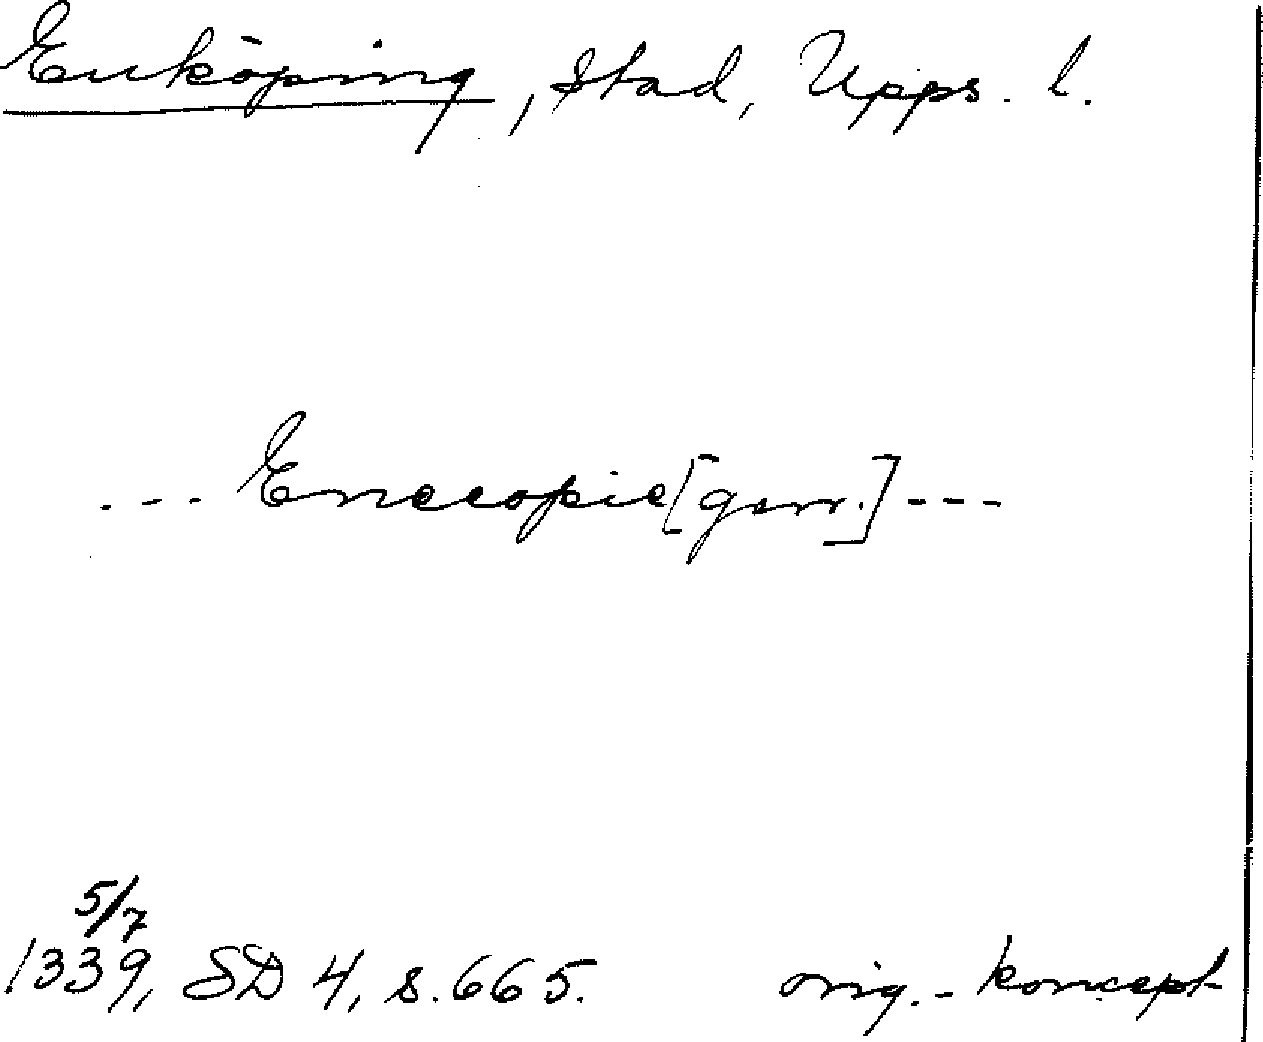 Enköping, stad, Upps. l.
--- Encopie[gsrr.] ---
5/7
1339, SD 4, s. 665. orig.-koncept